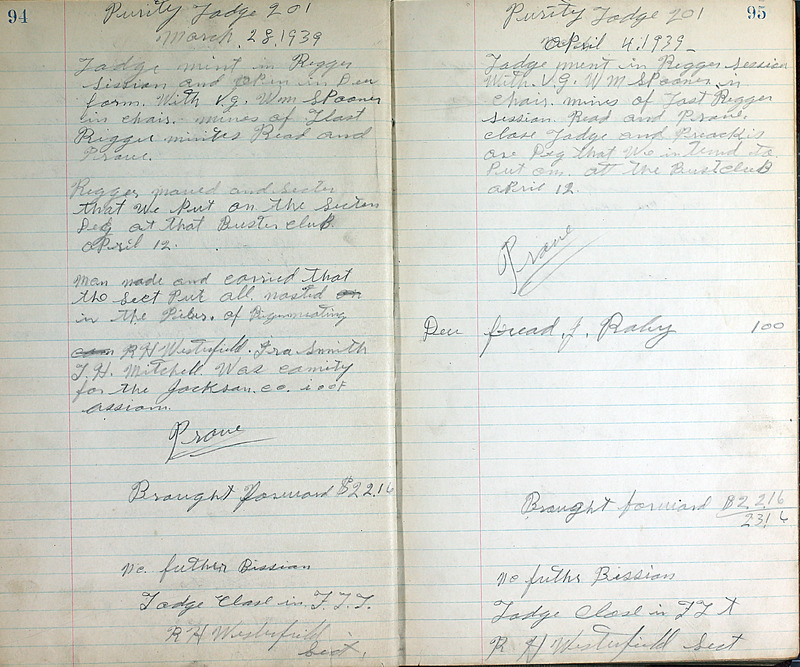 94
Purity Lodge 201
March, 28, 1939
Lodge ment in Regger
Sission and oPen in Due
form. With V.g. Wm SPooner
in chair. mines of Last
Rigger minites Read and
Prove.
Regger moved and Secten
that We Put on the Secten
Deg at that Buster club
aPril 12.
Men made and carried that
the Sect Put all nosted
in the Pilers. of
R H Westerfield. Ira Smith
T. H. Mitchell. Was comity
for the Jackson. co. i o o F
assiom.
Prove
Brought forward $22.16
no futher Bission
Lodge Close in F. L. T.
R H Westerfield
Sect.
95
Purity Lodge 201
aPril 4, 1939
Lodge ment in Regger Session
With. V.g. Wm SPooner in
chair. mines of Last Regger
Session. Read and Prove.
close Lodge and Practis
one Deg that We intend to
Put on. at the Bust club
aPril 12.
Prove
Due fread. J. Raby 100
Brought forward $22.16
23.16
no futhr Bission
Lodge Close in F L T
R H Westerfield Sect